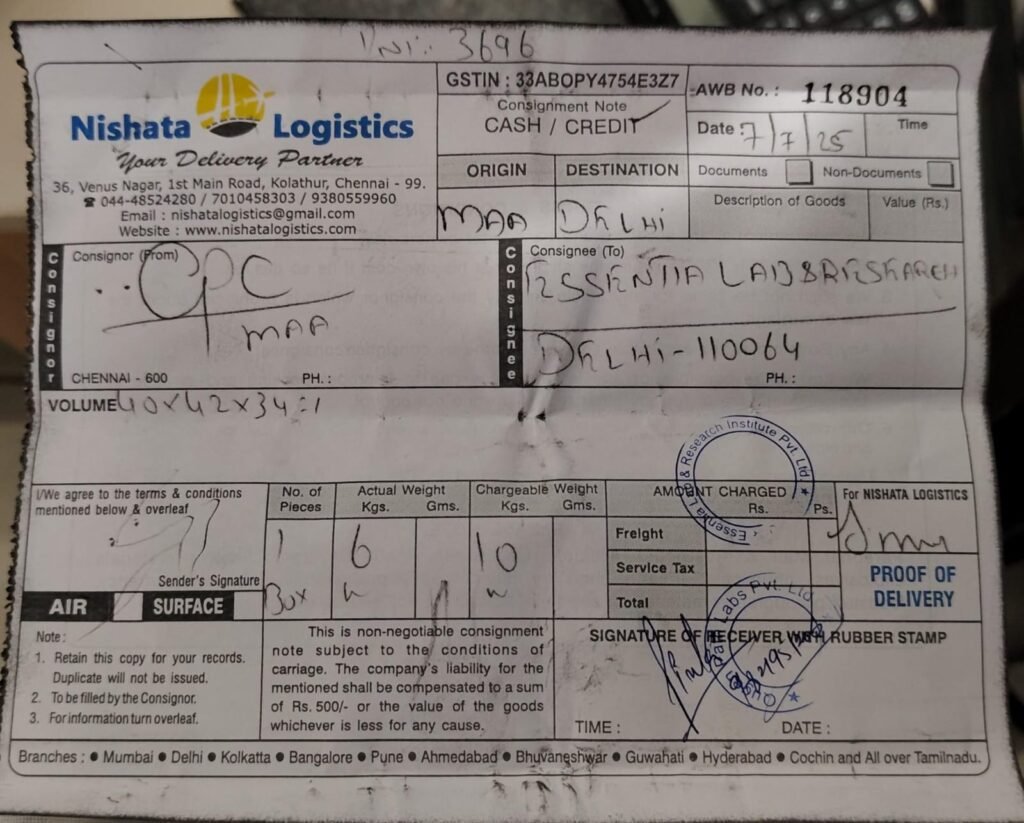 Inv: 3696
Nishata Logistics
Your Delivery Partner
36, Venus Nagar, 1st Main Road, Kolathur, Chennai - 99.
☎ 044-48524280 / 7010458303 / 9380559960
Email : nishatalogistics@gmail.com
Website : www.nishatalogistics.com
GSTIN : 33ABOPY4754E3Z7
Consignment Note
CASH / CREDIT ✓
AWB No. : 118904
Date : 7/7/25
Time
ORIGIN
DESTINATION
MAA
DELHI
Documents
Non-Documents
Description of Goods
Value (Rs.)
Consignor
Consignor (From)
CPC
MAA
CHENNAI - 600
PH. :
Consignee
Consignee (To)
ESSENTIA LAB & RESEARCH
DELHI-110064
PH. :
VOLUME 40x42x34:1
I/We agree to the terms & conditions
mentioned below & overleaf
Sender's Signature
AIR
SURFACE
No. of Pieces
1
Box
Actual Weight
Kgs.
Gms.
6
Chargeable Weight
Kgs.
Gms.
10
AMOUNT CHARGED
Rs.
Ps.
Freight
Service Tax
Total
& Research Institute Pvt. Ltd. ★
For NISHATA LOGISTICS
PROOF OF
DELIVERY
Note :
1. Retain this copy for your records.
Duplicate will not be issued.
2. To be filled by the Consignor.
3. For information turn overleaf.
This is non-negotiable consignment
note subject to the conditions of
carriage. The company's liability for the
mentioned shall be compensated to a sum
of Rs. 500/- or the value of the goods
whichever is less for any cause.
SIGNATURE OF RECEIVER WITH RUBBER STAMP
Labs Pvt. Ltd
TIME :
DATE :
Branches : ● Mumbai ● Delhi ● Kolkatta ● Bangalore ● Pune ● Ahmedabad ● Bhuvaneshwar ● Guwahati ● Hyderabad ● Cochin and All over Tamilnadu.